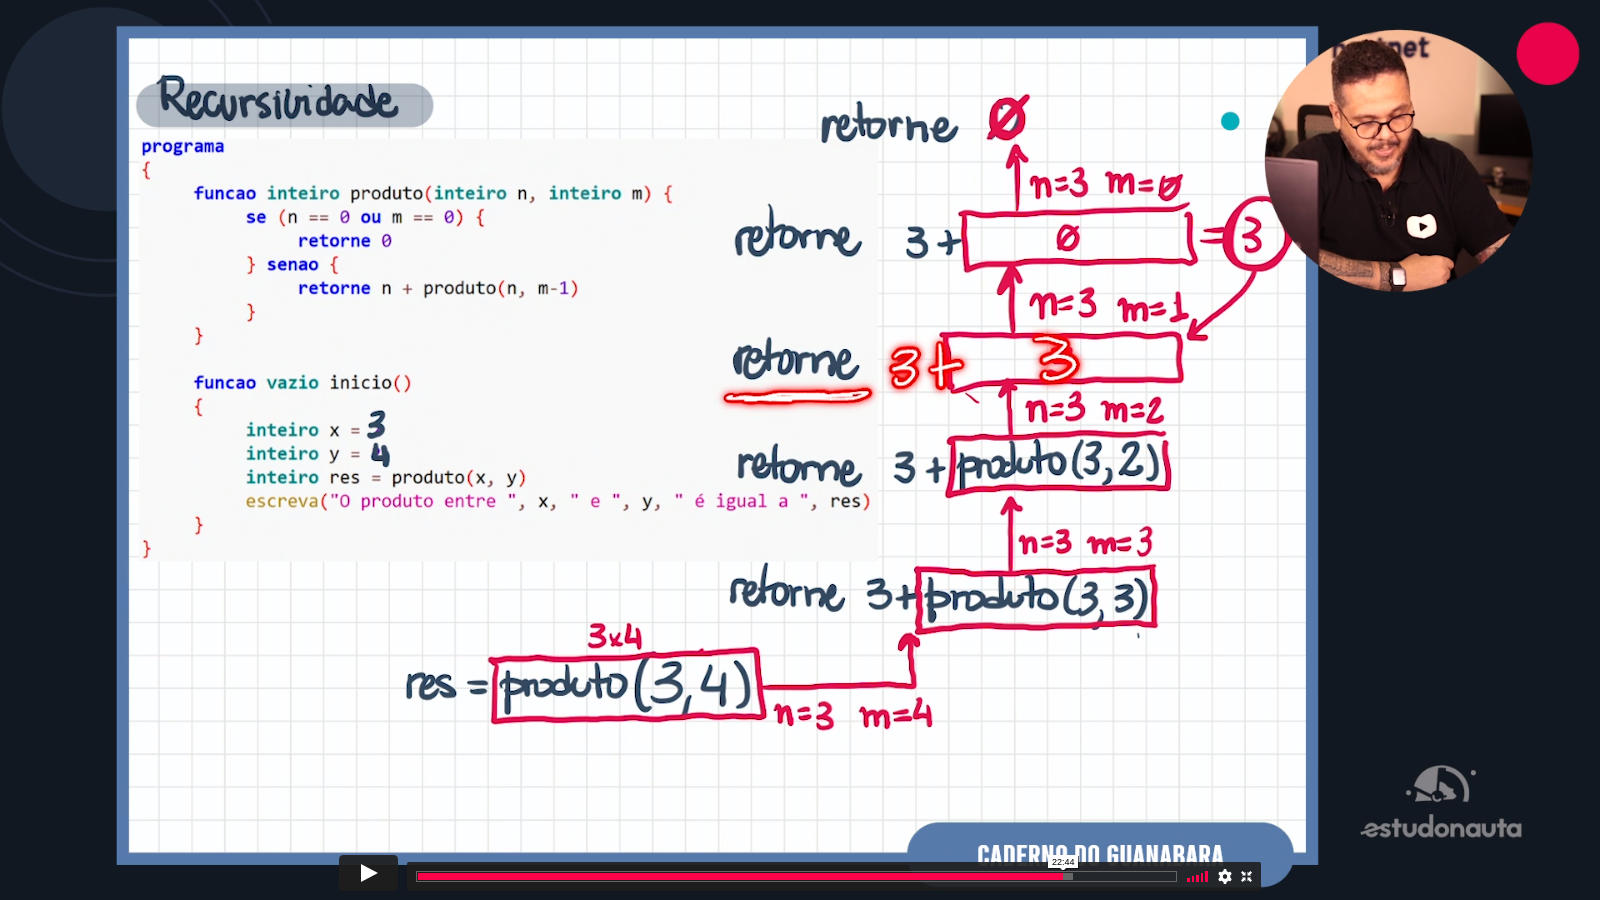 Recursividade
programa
{
funcao inteiro produto(inteiro n, inteiro m) {
se (n == 0 ou m == 0) {
retorne 0
} senao {
retorne n + produto(n, m-1)
}
}
funcao vazio inicio()
{
inteiro x = 3
inteiro y = 4
inteiro res = produto(x, y)
escreva("O produto entre ", x, " e ", y, " é igual a ", res)
}
}
retorne 0
n=3 m=0
retorne 3+ 0 =3
n=3 m=1
retorne 3+ 3
n=3 m=2
retorne 3+produto(3,2)
n=3 m=3
retorne 3+produto(3,3)
3x4
res = produto(3,4)
n=3 m=4
estudonauta
CADERNO DO GUANABARA
22:44